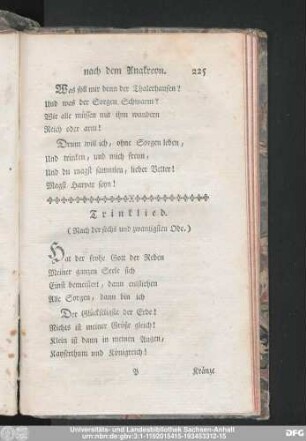 nach dem Anakreon. 225
Was soll nur denn der Thalerhaufen?
Und was der Sorgen Schwarm?
Wir alle müssen mit ihm wandern
Reich oder arm!
Drum will ich, ohne Sorgen leben,
Und trinken, und mich freun,
Und du magst sammlen, lieber Vetter!
Magst Harpax seyn!
Trinklied.
(Nach der sechs und zwanzigsten Ode.)
Hat der frohe Gott der Reben
Meiner ganzen Seele sich
Einst bemeistert, dann entfliehen
Alle Sorgen, dann bin ich
Der Glückseligste der Erde!
Nichts ist meiner Größe gleich!
Klein ist dann in meinen Augen,
Kayserthum und Königreich!
P Kränze
Universitäts- und Landesbibliothek Sachsen-Anhalt
urn:nbn:de:gbv:3:1-1192015415-193453312-15
DFG